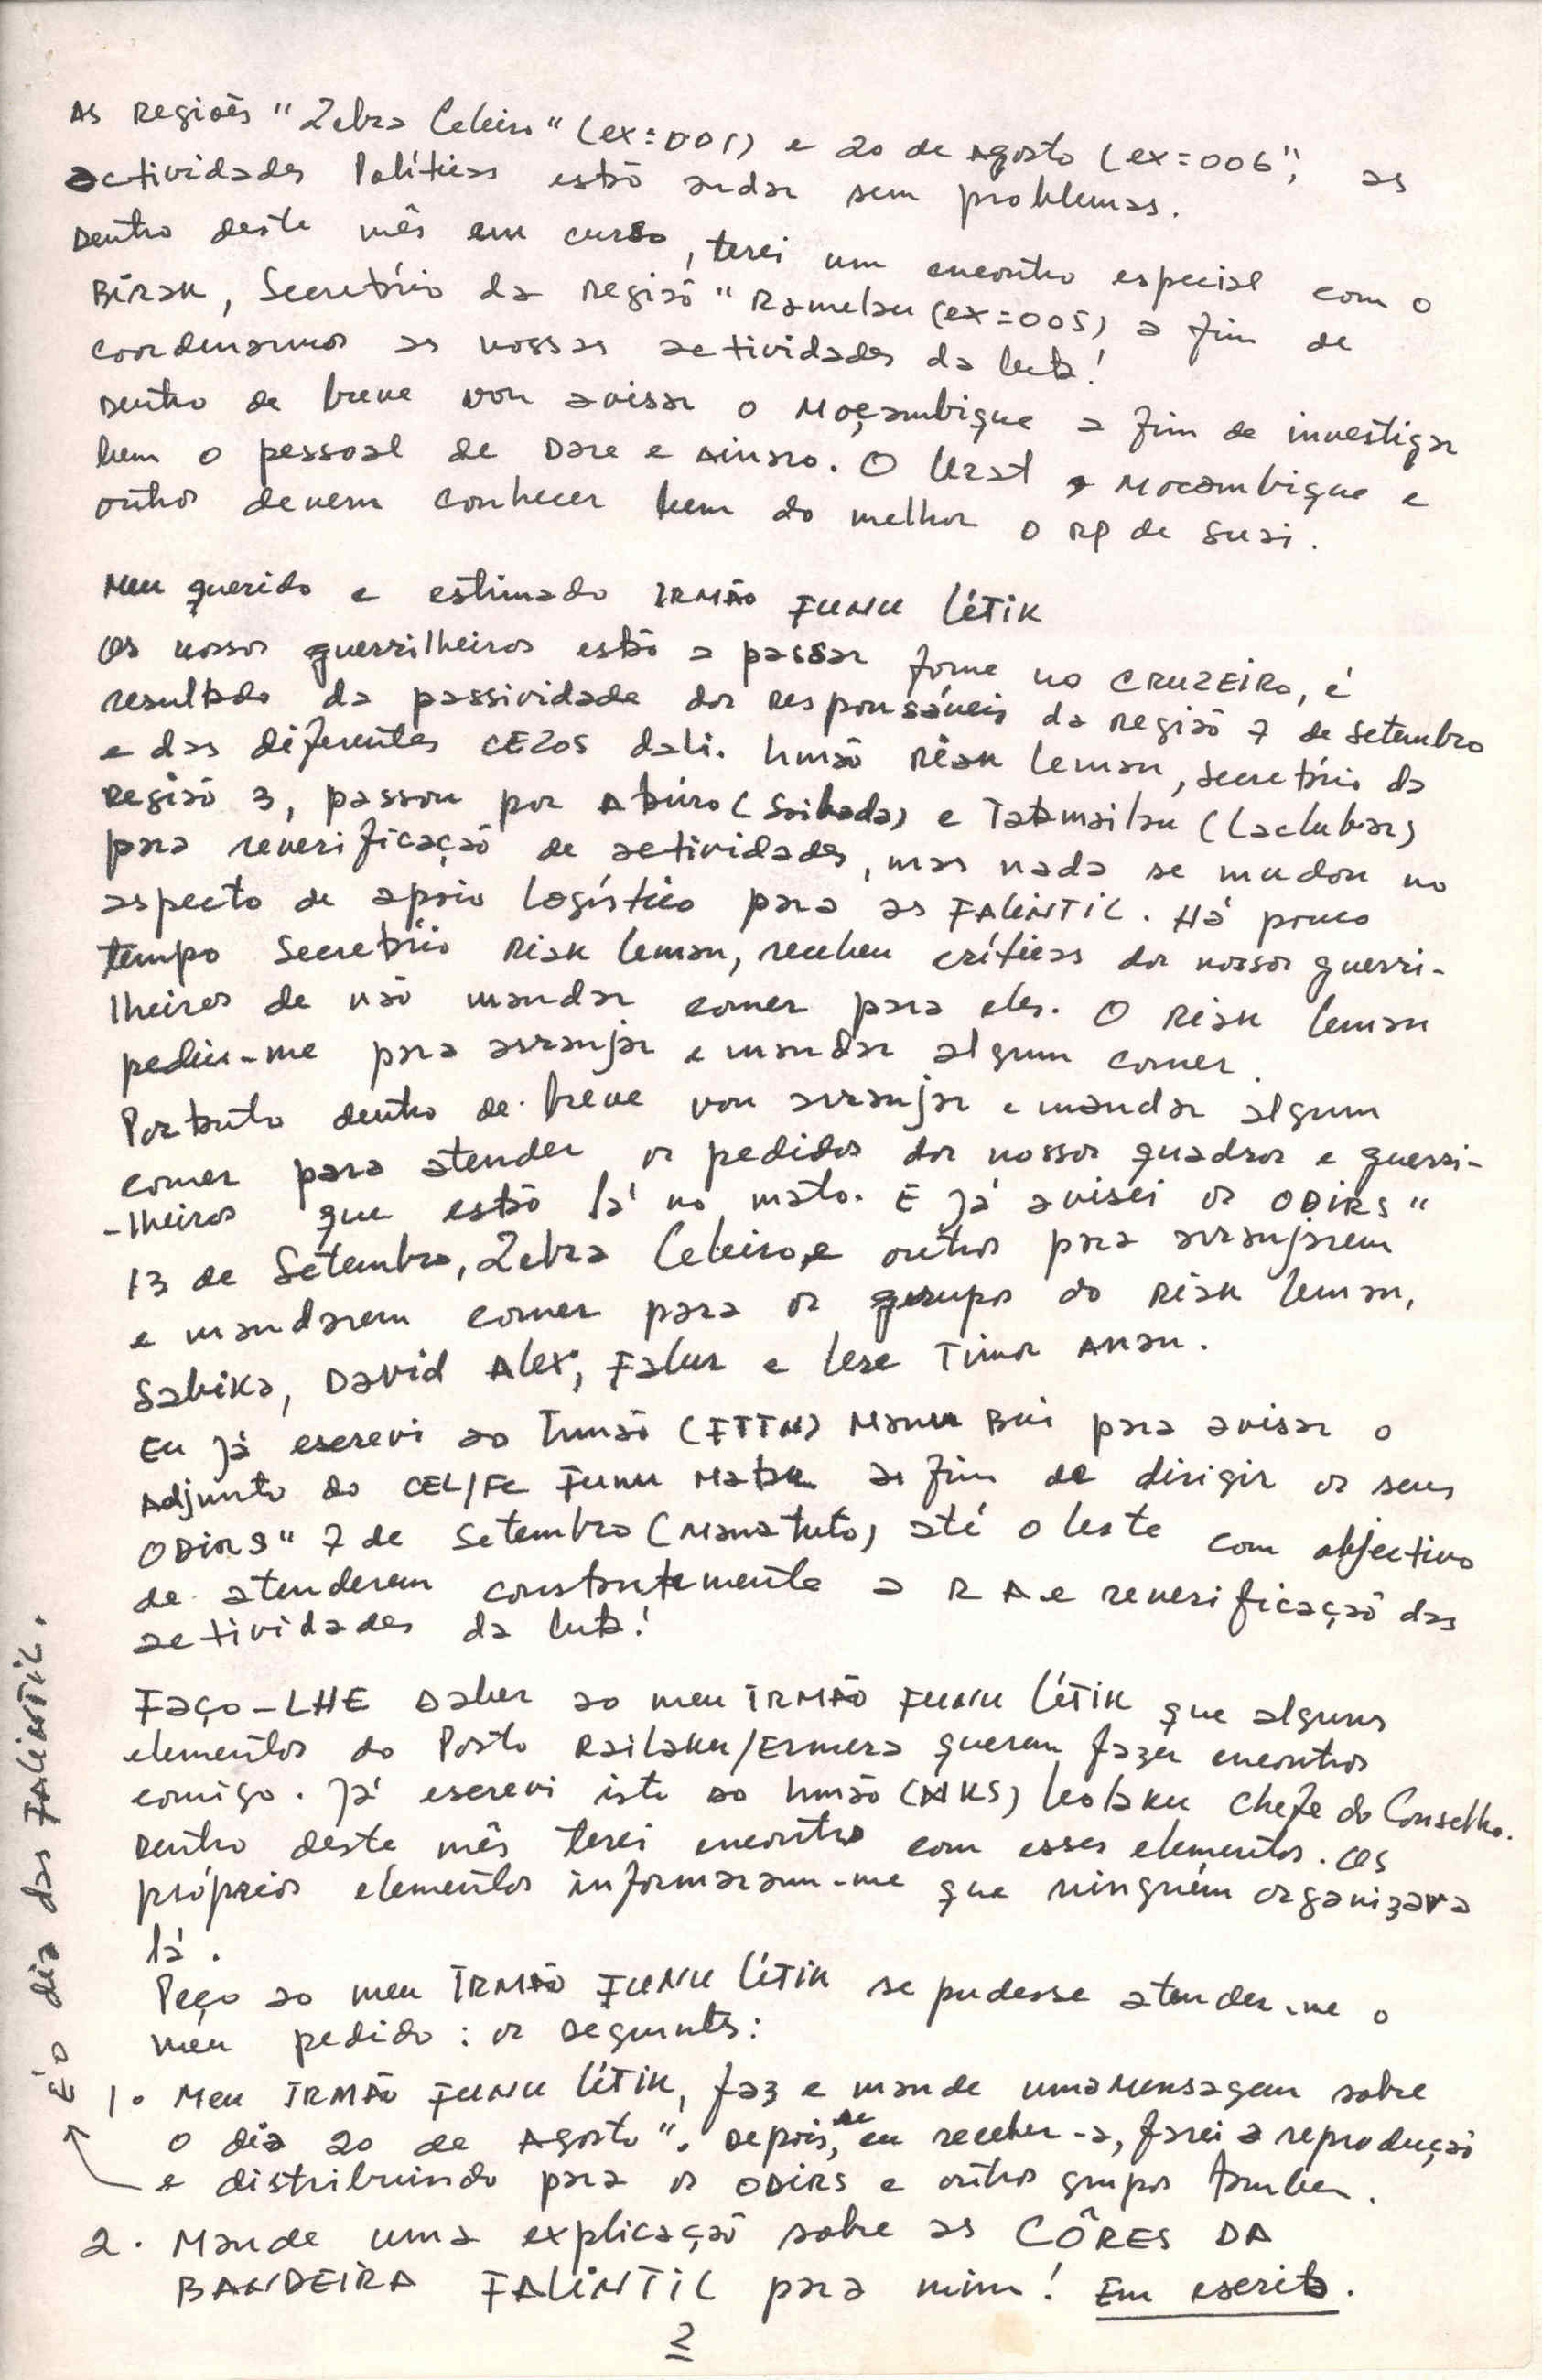 As Regiões "Zebra Celeiro" (ex=001) e 20 de Agosto (ex=006", as
actividades Políticas estão andar sem problemas.
Dentro deste mês em curso, terei um encontro especial com o
BÍRAK, Secretário da região "Ramelau (ex=005) a fim de
coordenarmos as nossas actividades da luta!
Dentro de breve vou avisar o Moçambique a fim de investigar
bem o pessoal de Dare e Ainaro. O Ural, Mocambique e
outros devem conhecer bem do melhor o RP de Suai.
Meu querido e estimado IRMÃO FUNU LÉTIK
Os nossos guerrilheiros estão a passar fome no CRUZEIRO, é
resultado da passividade dos responsáveis da região 7 de Setembro
e das diferentes CEZOS dali. Irmão Riak Leman, Secretário da
Região 3, passou por Abúro (Soibada) e Tatamailau (Laclubar)
para reverificação de actividades, mas nada se mudou no
aspecto de apoio logístico para as FALINTIL. Há pouco
tempo Secretário Riak Leman, recebeu críticas dos nossos guerri-
lheiros de não mandar comer para eles. O Riak Leman
pediu-me para arranjar e mandar algum comer.
Portanto dentro de breve vou arranjar e mandar algum
comer para atender os pedidos dos nossos quadros e guerri-
-lheiros que estão lá no mato. E já avisei os ODIRS "
13 de Setembro, Zebra Celeiro, e outros para arranjarem
e mandarem comer para os grupos do Riak Leman,
Sabika, David Alex, Falur e Lere Timor Anan.
Eu já escrevi ao Irmão (FTTN) Manu Bui para avisar o
Adjunto do CEL/FC Funu Matak a fim de dirigir os seus
ODIRS" 7 de Setembro (Manatuto) até o leste com objectivo
de atenderem constantemente a RA e reverificação das
actividades da luta!
Faço-LHE saber ao meu IRMÃO FUNU LÉTIK que alguns
elementos do Posto Railaku/Ermera querem fazer encontros
comigo. Já escrevi isto ao Irmão (NKS) Leolaku Chefe do Conselho.
Dentro deste mês terei encontro com esses elementos. Os
próprios elementos informaram-me que ninguém organizava
lá.
Peço ao meu IRMÃO FUNU LÉTIK se pudesse atender-me o
meu pedido: os seguintes:
1. Meu IRMÃO FUNU LÉTIK, faz e mande uma mensagem sobre
o dia 20 de Agosto". Depois, se eu receber-a, farei a reprodução
e distribuindo para os ODIRS e outros grupos tambem.
É o dia das FALINTIL.
2. Mande uma explicação sobre as CÔRES DA
BANDEIRA FALINTIL para mim! Em escrito.
2